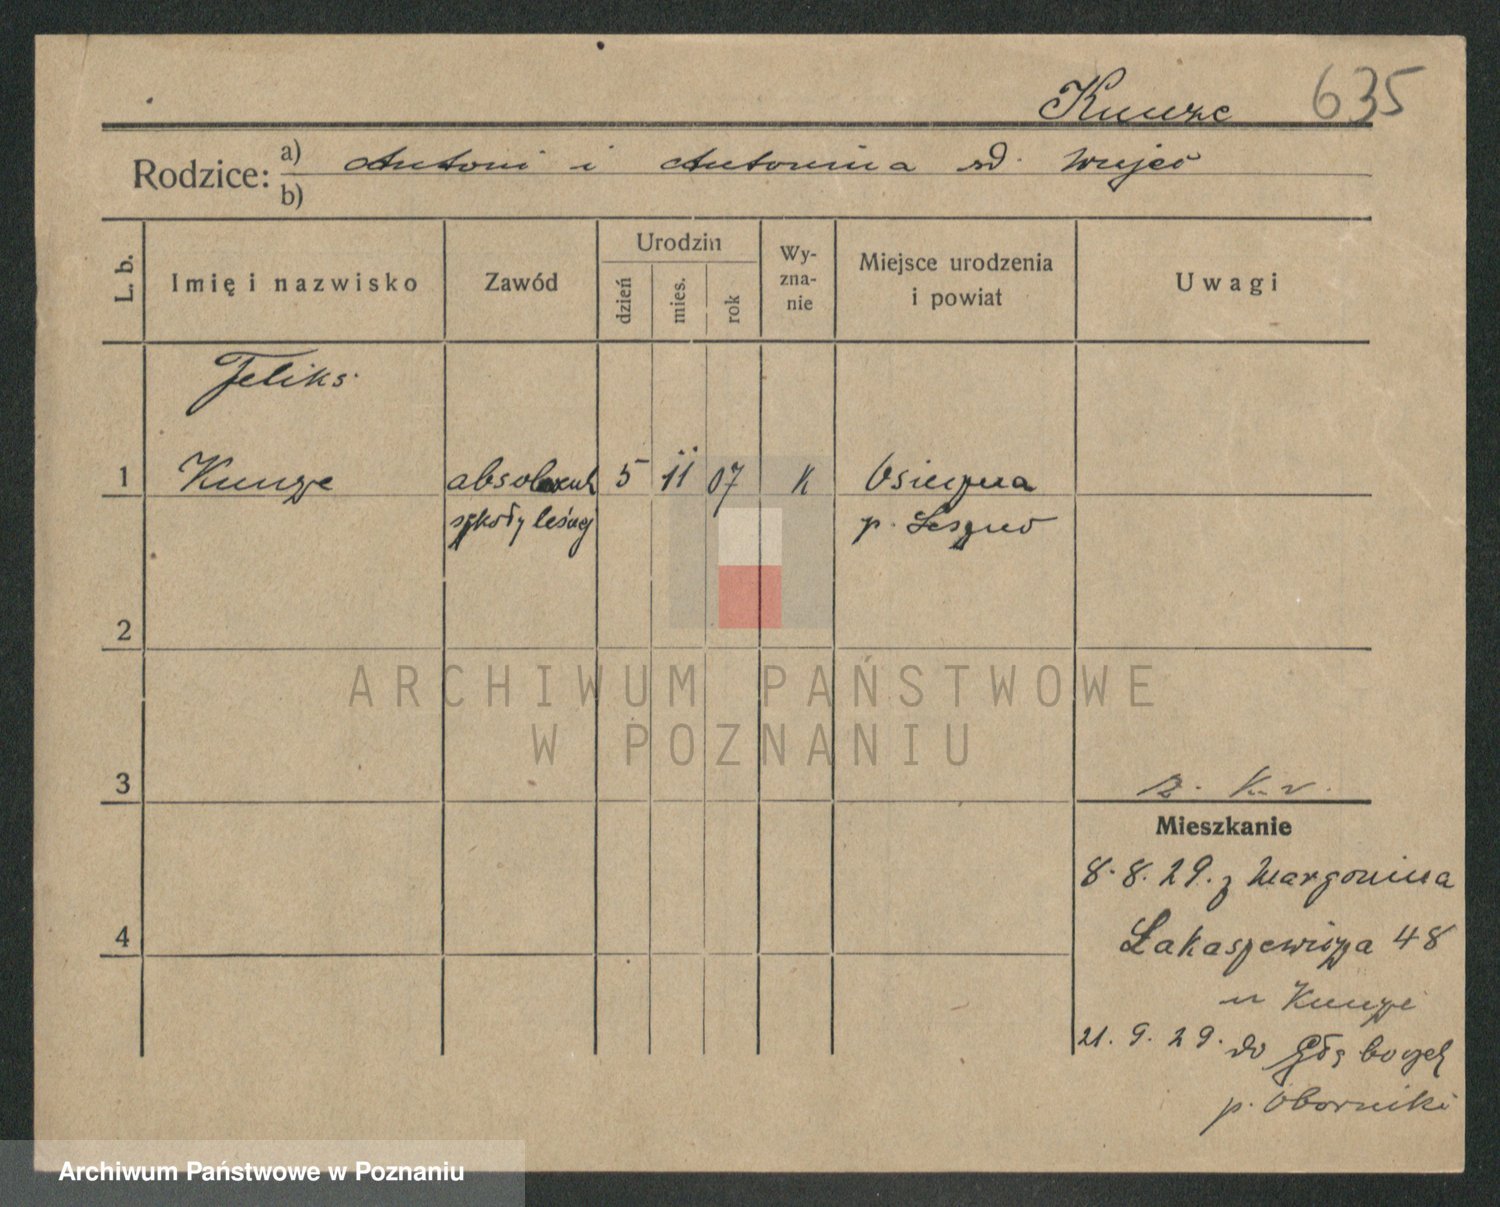 Kunze 635
Rodzice: a) Antoni i Antonina zd. Wujec
b)
L. b. Imię i nazwisko Zawód Urodzin dzień mies. rok Wy-zna-nie Miejsce urodzenia i powiat Uwagi
Feliks
1 Kunze absolwent 5 11 07 k Osieczna
szkoły leśnej p. Leszno
2
ARCHIWUM PAŃSTWOWE
W POZNANIU
3
Mieszkanie
8.8.29. z Margonina
4 Łakaszewicza 48
u Kunze
21.9.29. do Głęboczek
p. Oborniki
Archiwum Państwowe w Poznaniu